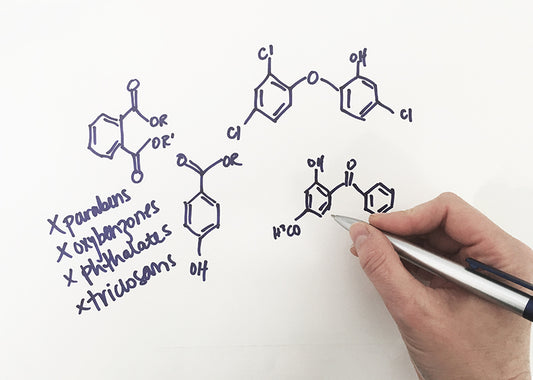 Cl
OH
O
Cl
Cl
O
OR
OR'
O
O
OR
OH
OH
O
H³CO
x parabens
x oxybenzones
x phthalates
x triclosans